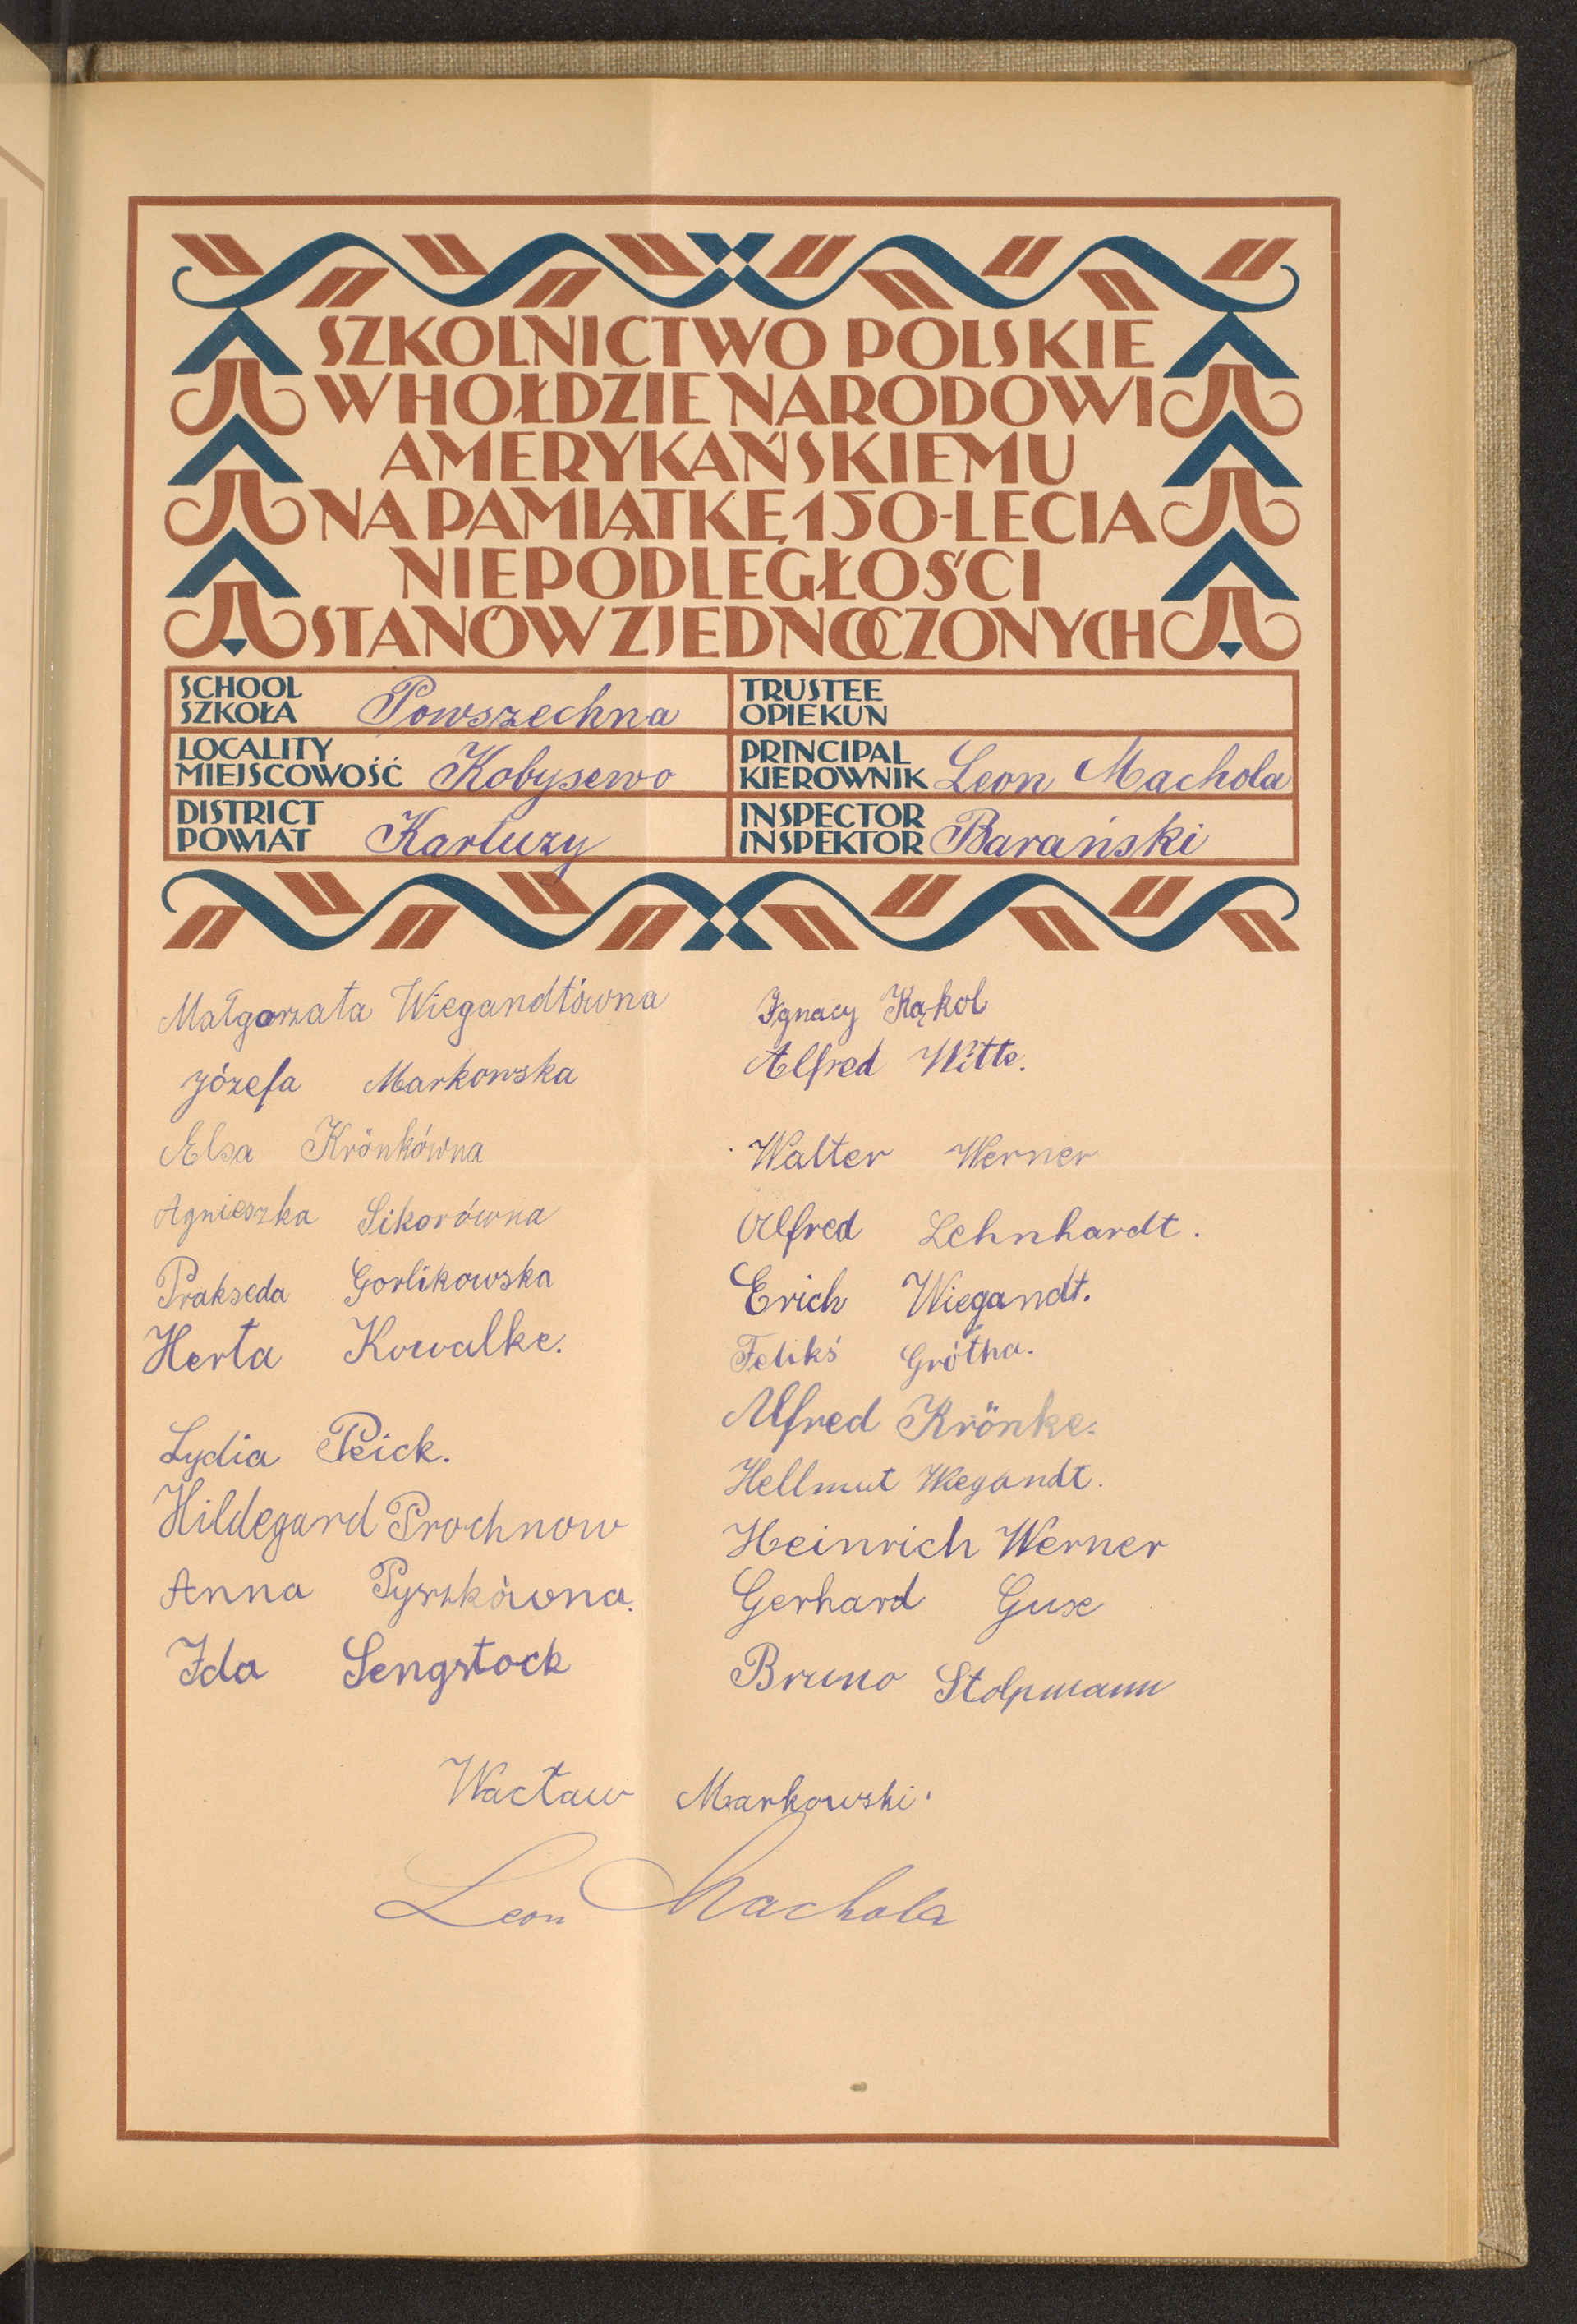 SZKOLNICTWO POLSKIE
W HOŁDZIE NARODOWI
AMERYKAŃSKIEMU
NA PAMIĄTKĘ 150-LECIA
NIEPODLEGŁOŚCI
STANÓW ZJEDNOCZONYCH
SCHOOL
SZKOŁA Powszechna
TRUSTEE
OPIEKUN
LOCALITY
MIEJSCOWOŚĆ Kobysewo
PRINCIPAL
KIEROWNIK Leon Machola
DISTRICT
POWIAT Kartuzy
INSPECTOR
INSPEKTOR Barański
Małgorzata Wiegandtówna
Józefa Markowska
Elsa Krönkówna
Agnieszka Sikorówna
Prakseda Gorlikowska
Herta Kowalke.
Lydia Peick.
Hildegard Prochnow
Anna Pyszkówna.
Ida Sengstock
Ignacy Kąkol
Alfred Witte.
Walter Werner
Alfred Lehnhardt.
Erich Wiegandt.
Feliks Grötha.
Alfred Krönke.
Hellmut Wiegandt.
Heinrich Werner
Gerhard Guse
Bruno Stolpmann
Wacław Markowski.
Leon Machola